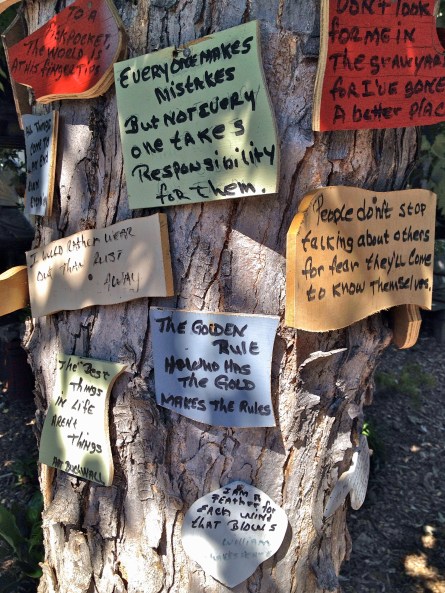 TO A
PICKPOCKET,
THE WORLD IS
AT HIS FINGERTIPS
EVERYONE MAKES
MISTAKES
BUT NOT EVERY
ONE TAKES
RESPONSIBILITY
FOR THEM.
DON'T LOOK
FOR ME IN
THE GRAVEYARD
FOR I'VE GONE
A better PLAC
ALL THINGS
I WOULD RATHER WEAR
OUT THAN RUST
AWAY
People don't stop
talking about others
for fear they'll come
to know themselves.
THE GOLDEN
RULE
HOWHO HAS
THE GOLD
MAKES THE RULES
"The Best
THINGS
IN LIFE
ARENT
THINGS
ART BUCHWALL
I AM A
FEATHER FOR
EACH WIND
THAT BLOWS
WILLIAM